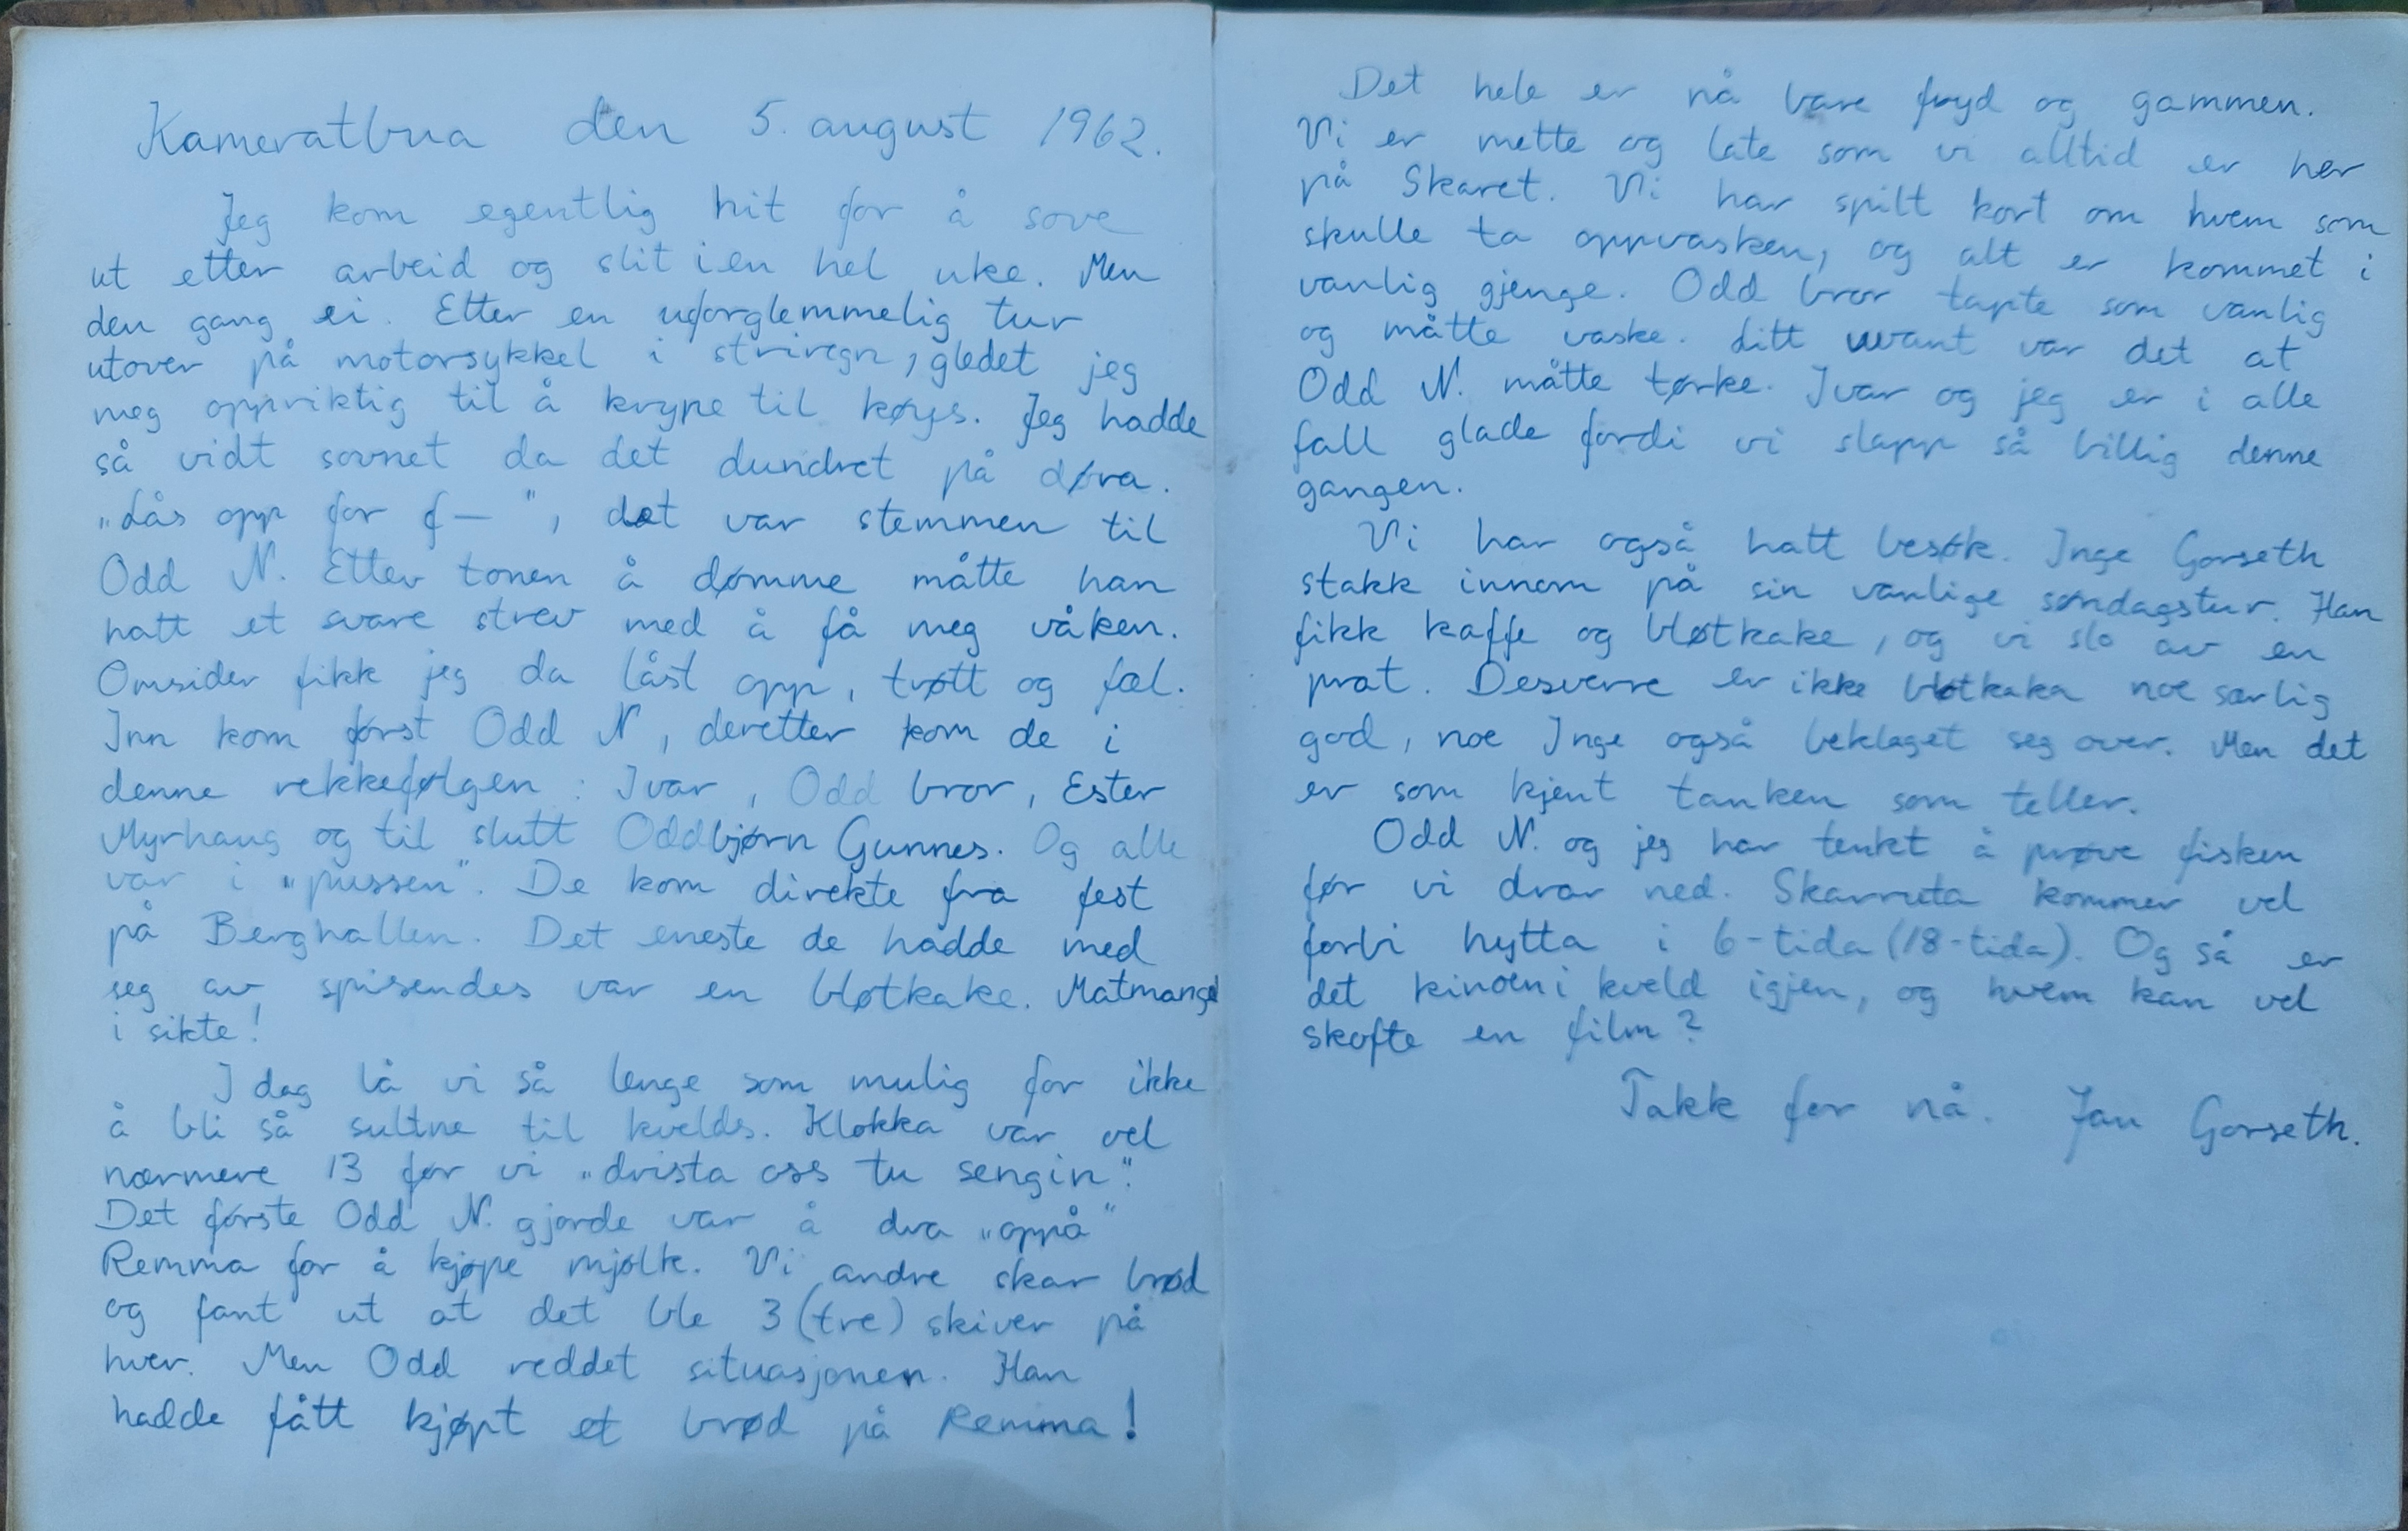 Kameratbua den 5. august 1962.
Jeg kom egentlig hit for å sove
ut etter arbeid og slit i en hel uke. Men
den gang ei. Etter en uforglemmelig tur
utover på motorsykkel i striregn, gledet jeg
meg oppriktig til å krype til køys. Jeg hadde
så vidt sovnet da det dundret på døra.
„Lås opp for f— ", det var stemmen til
Odd N. Etter tonen å dømme måtte han
hatt et svare strev med å få meg våken.
Omsider fikk jeg da låst opp, trøtt og fæl.
Inn kom først Odd N, deretter kom de i
denne rekkefølgen : Ivar, Odd bror, Ester
Myrhaug og til slutt Oddbjørn Gunnes. Og alle
var i „pussen". De kom direkte fra fest
på Berghallen. Det eneste de hadde med
seg av spisendes var en bløtkake. Matmangel
i sikte!
I dag lå vi så lenge som mulig for ikke
å bli så sultne til kvelds. Klokka var vel
nærmere 13 før vi „drista oss tu sengin".
Det første Odd N. gjorde var å dra „oppå"
Remma for å kjøpe mjølk. Vi andre skar brød
og fant ut at det ble 3 (tre) skiver på
hver. Men Odd reddet situasjonen. Han
hadde fått kjøpt et brød på Remma!
Det hele er nå bare fryd og gammen.
Vi er mette og late som vi alltid er her
på Skaret. Vi har spilt kort om hvem som
skulle ta oppvasken, og alt er kommet i
vanlig gjenge. Odd bror tapte som vanlig
og måtte vaske. Litt uvant var det at
Odd N. måtte tørke. Ivar og jeg er i alle
fall glade fordi vi slapp så billig denne
gangen.
Vi har også hatt besøk. Inge Gorseth
stakk innom på sin vanlige søndagstur. Han
fikk kaffe og bløtkake, og vi slo av en
prat. Desverre er ikke bløtkaka noe særlig
god, noe Inge også beklaget seg over. Men det
er som kjent tanken som teller.
Odd N. og jeg har tenkt å prøve fisken
før vi drar ned. Skarruta kommer vel
forbi hytta i 6-tida (18-tida). Og så er
det kinoen i kveld igjen, og hvem kan vel
skofte en film?
Takk for nå. Jan Gorseth.